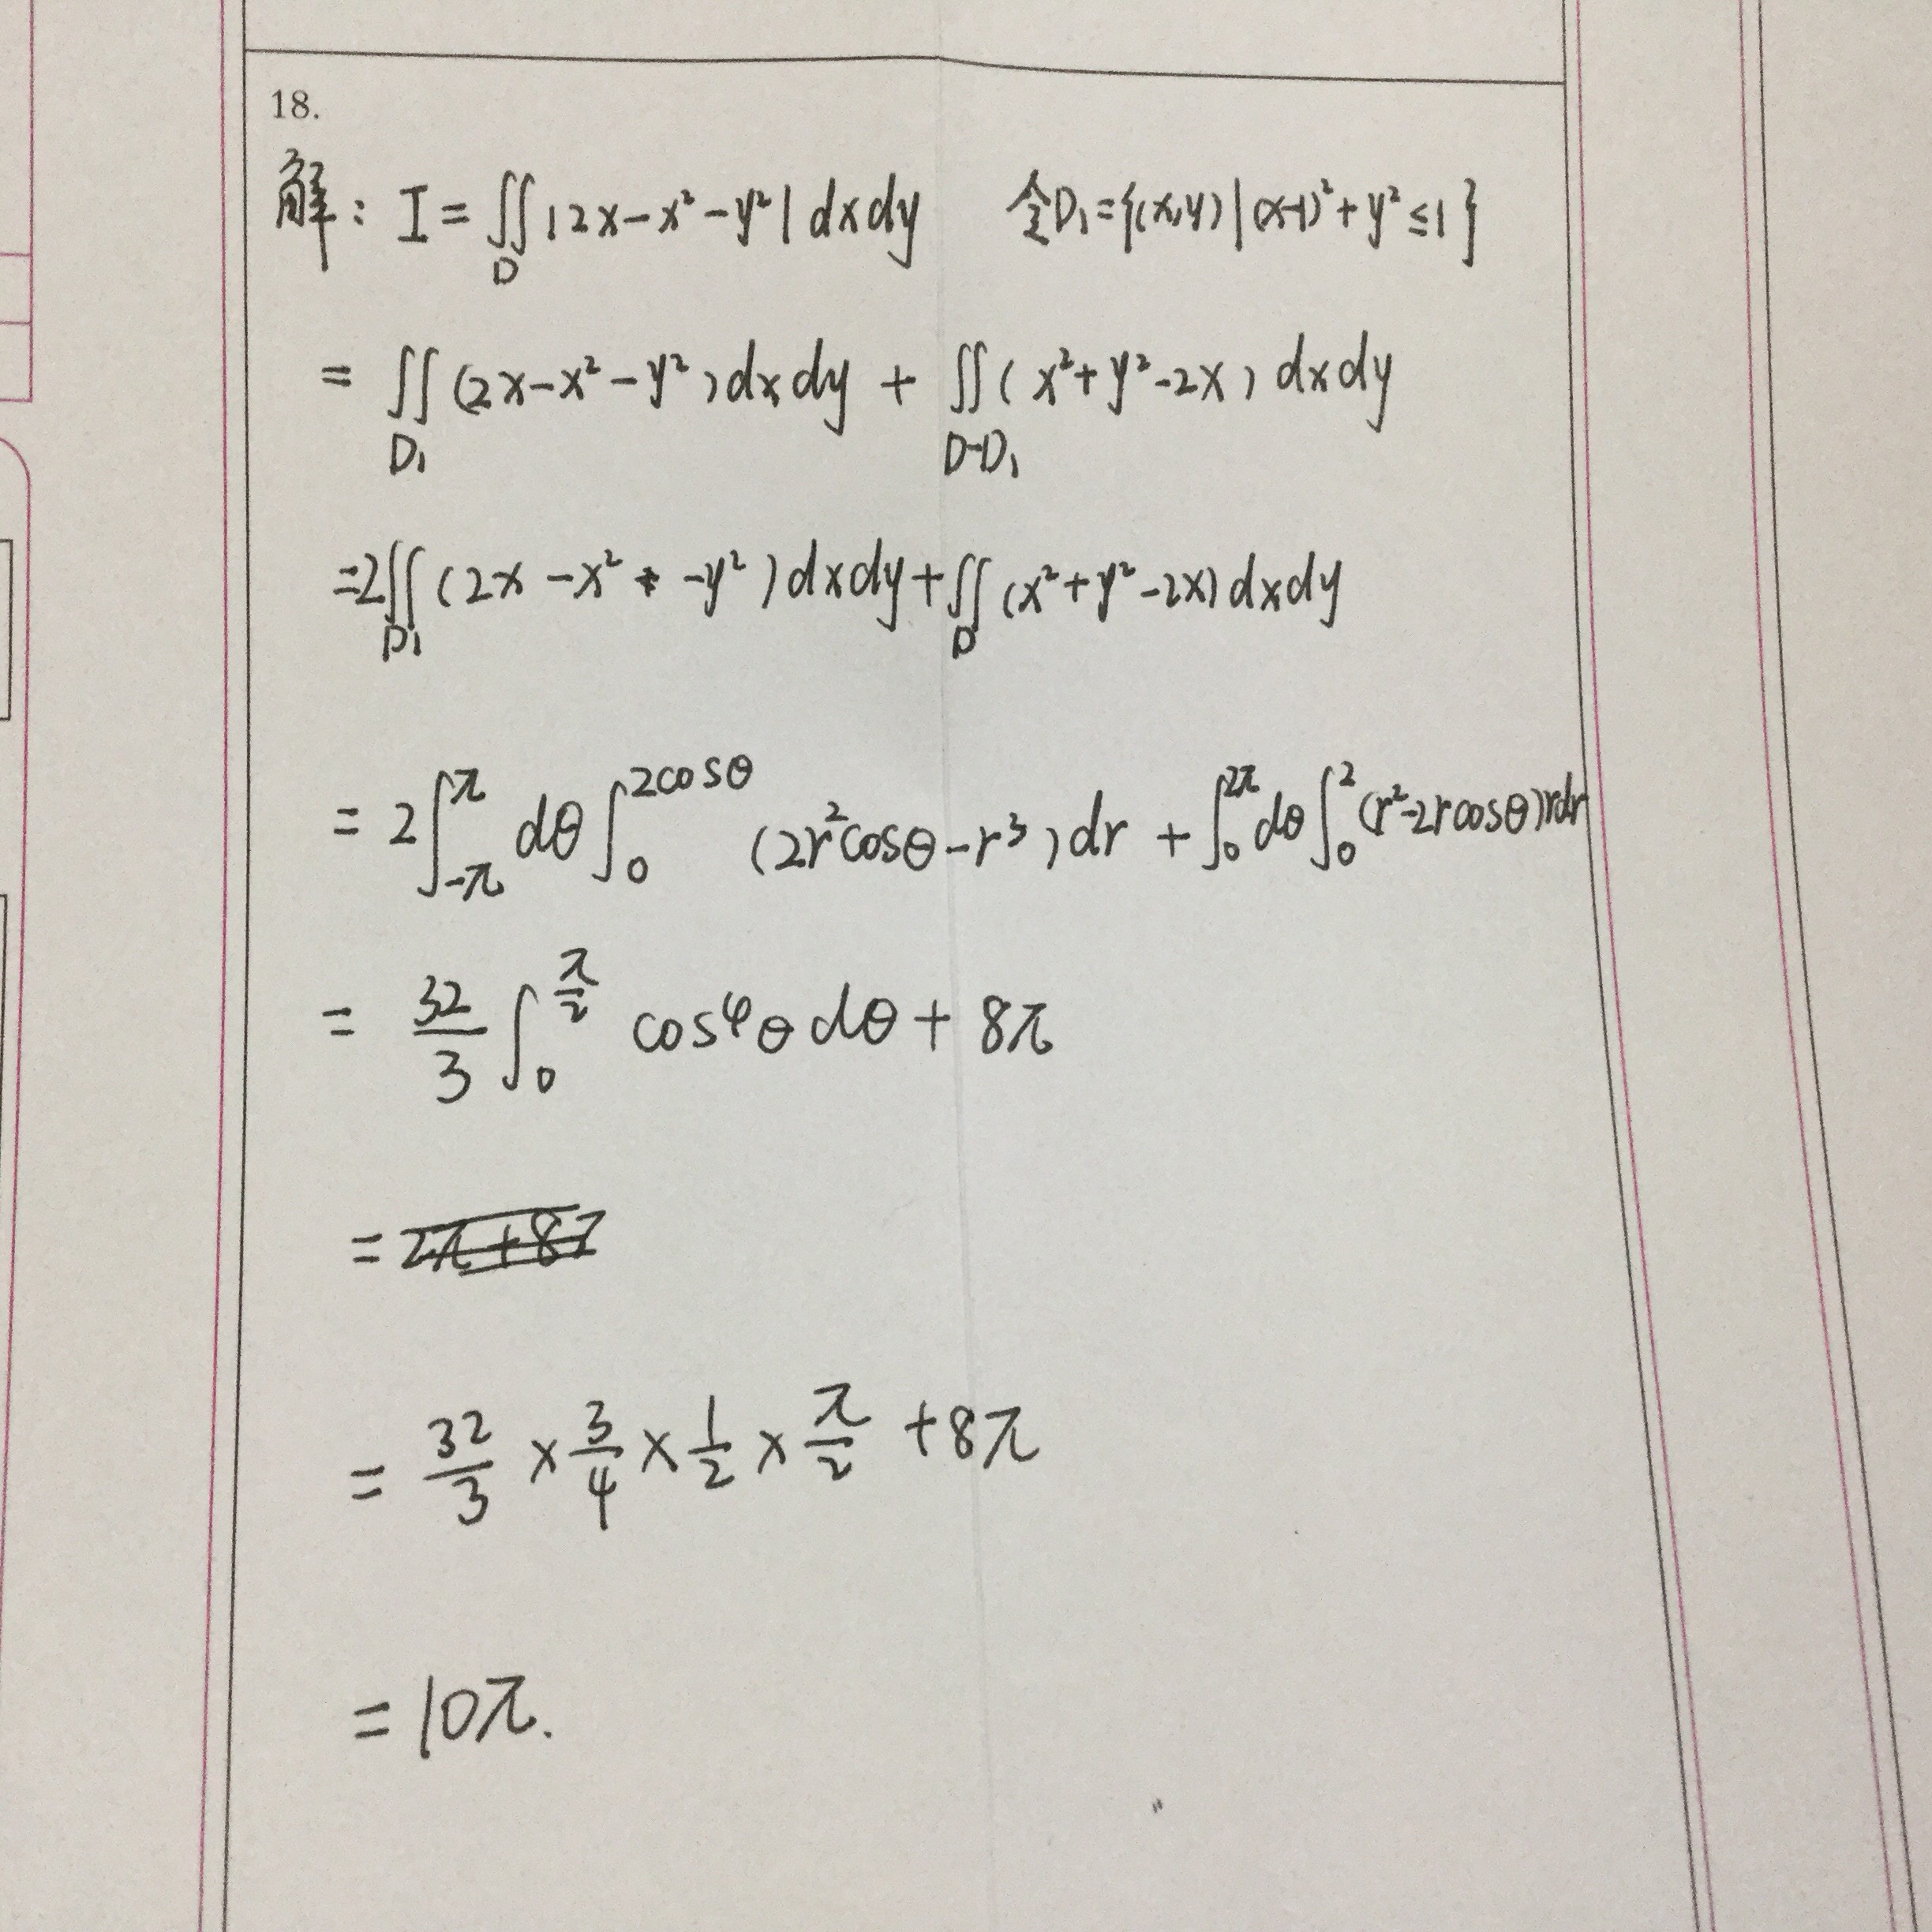 18.
解: I = ∬_D |2x-x²-y²| dxdy 令D₁={(x,y)|(x-1)²+y²≤1}
= ∬_{D₁} (2x-x²-y²)dxdy + ∬_{D-D₁} (x²+y²-2x) dxdy
=2∬_{D₁} (2x-x²-y²)dxdy+∬_D (x²+y²-2x)dxdy
= 2∫_{-π}^{π} dθ ∫_0^{2cosθ} (2r²cosθ-r³)dr + ∫_0^{2π} dθ ∫_0^2 (r²-2rcosθ)rdr
= 32/3 ∫_0^{π/2} cos⁴θ dθ + 8π
= 32/3 × 3/4 × 1/2 × π/2 +8π
= 10π.